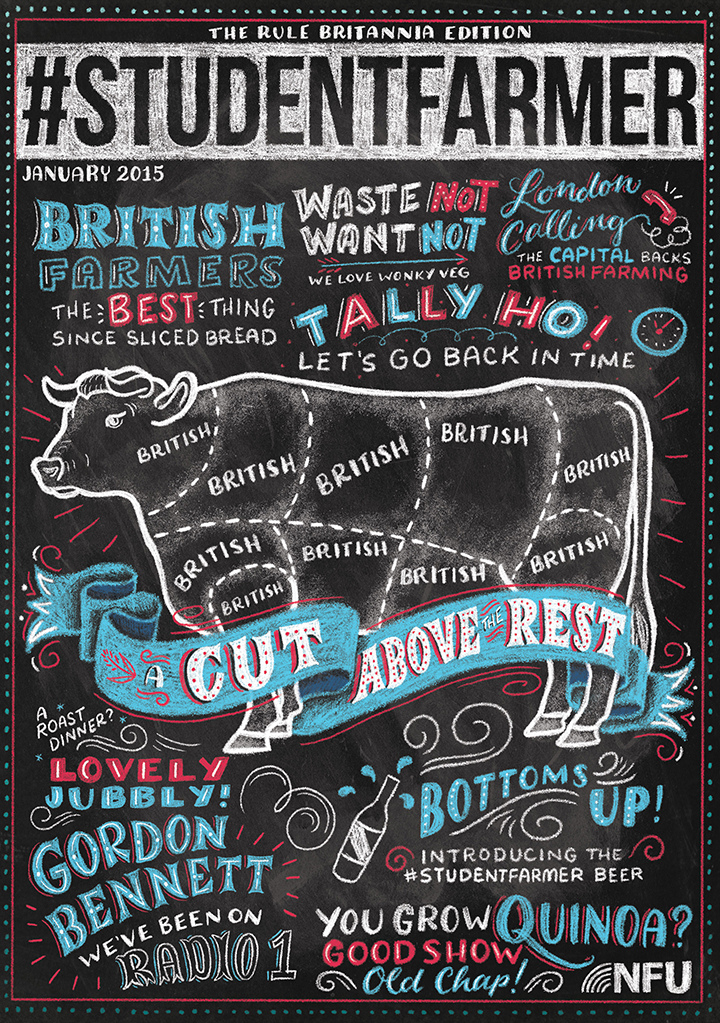 THE RULE BRITANNIA EDITION
#STUDENTFARMER
JANUARY 2015
BRITISH
FARMERS
THE BEST THING
SINCE SLICED BREAD
WASTE NOT
WANT NOT
WE LOVE WONKY VEG
London
Calling
THE CAPITAL BACKS
BRITISH FARMING
TALLY HO!
LET'S GO BACK IN TIME
BRITISH
BRITISH
BRITISH
BRITISH
BRITISH
BRITISH
BRITISH
BRITISH
BRITISH
BRITISH
A CUT ABOVE THE REST
A
ROAST
DINNER?
LOVELY
JUBBLY!
GORDON
BENNETT
WE'VE BEEN ON
RADIO 1
BOTTOMS
UP!
INTRODUCING THE
#STUDENTFARMER BEER
YOU GROW QUINOA?
GOOD SHOW
Old Chap!
NFU